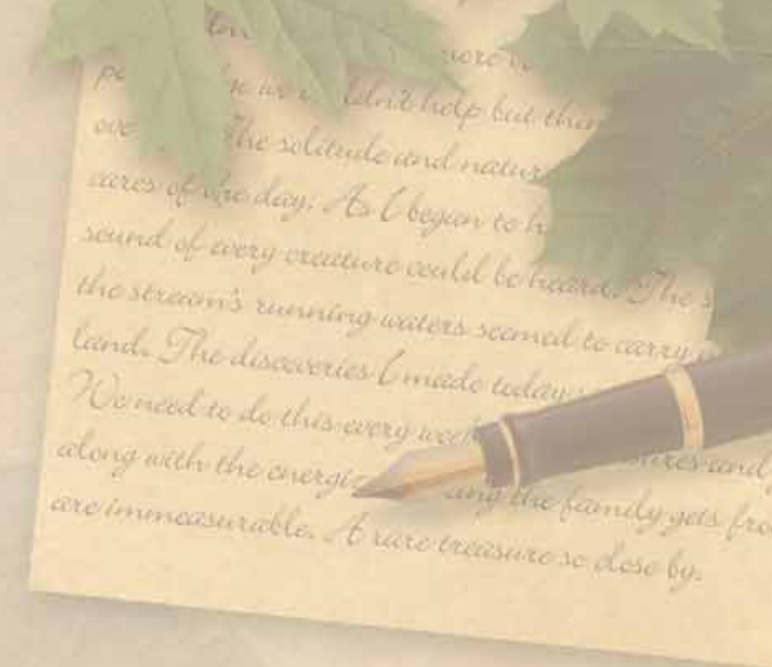 more
help but
The solitude and
cares of the day. As I began to
sound of every creature could be heard. The
the stream's running waters seemed to carry
land. The discoveries I made today
We need to do this every
along with the the family gets
are immeasurable. A rare treasure so close by.